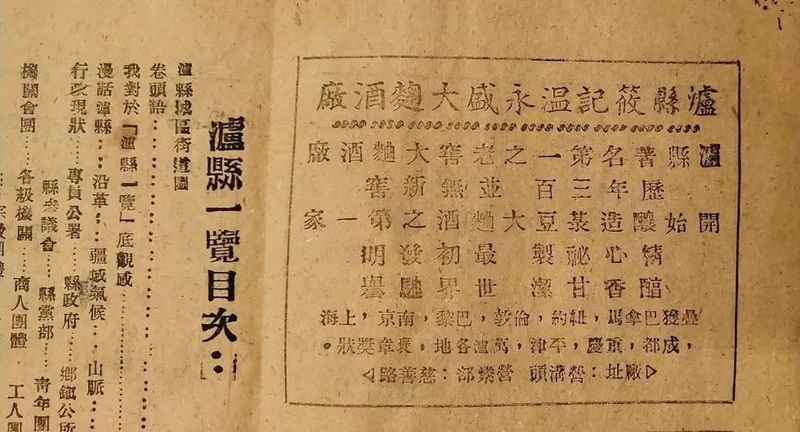 瀘縣筱記温永盛大麯酒廠
瀘縣著名第一之老窖大麯酒廠
歷年三百 並無新窖
開始釀造蒸豆大麯酒之第一家
精心祕製 最初發明
香甘潔 世界馳譽
疊獲巴拿馬，紐約，倫敦，巴黎，南京，上海
，成都，重慶，平津，萬瀘各地，褒章獎狀。
◁廠址：營溝頭 營業部：慈善路▷
瀘縣一覽目次：
瀘縣城區街道圖
卷頭語……
我對於「瀘縣一覽」底觀感……
漫話瀘縣…沿革…疆域氣候…山脈…
行政現狀…專員公署 縣政府 鄉鎮公所
縣參議會 縣黨部 青年團
機關會團…各級機關 商人團體 工人團